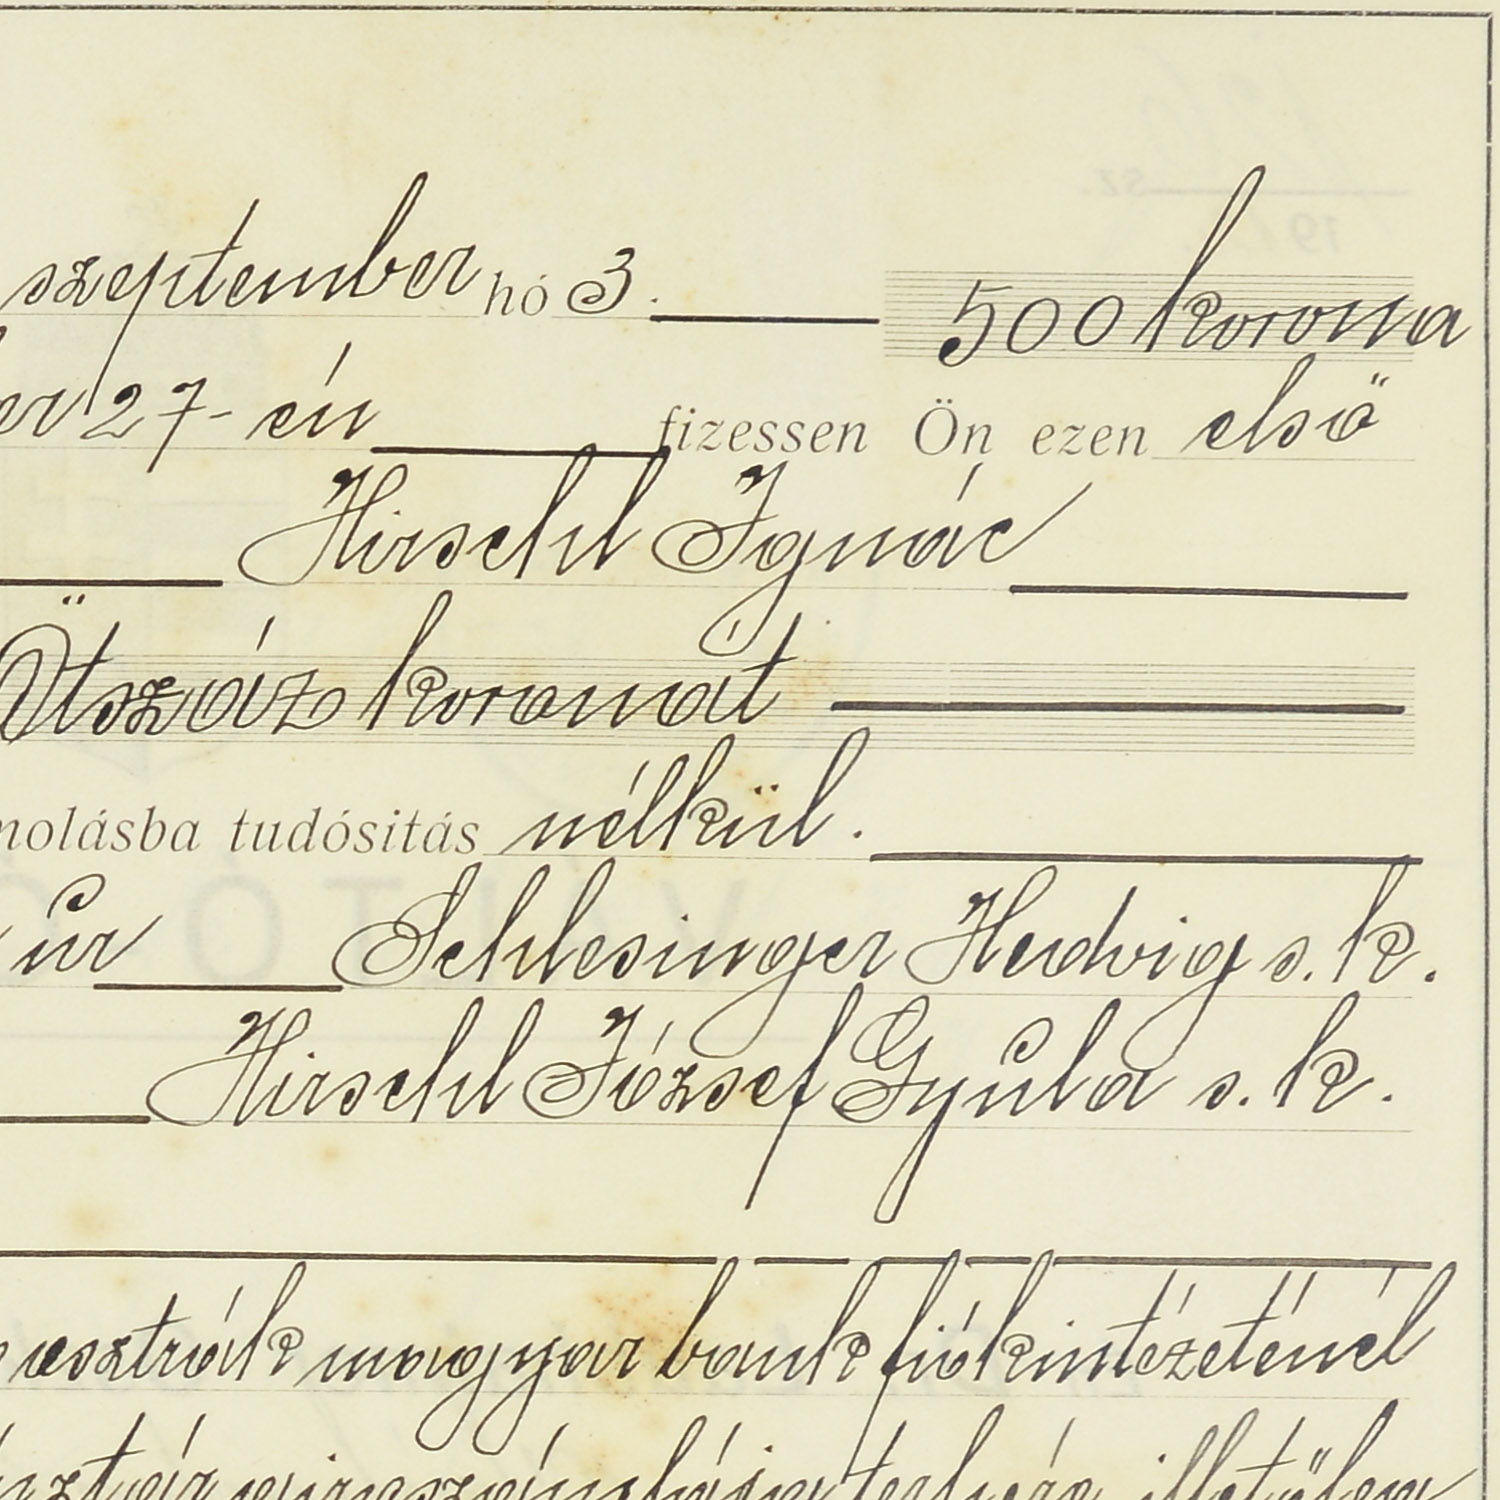 szeptember hó 3. 500 korona
27-én fizessen Ön ezen első
Hirschl Ignác
Ötszáz koronát
molásba tudósitás nélkül.
úr Schlesinger Hedvig s. k.
Hirschl József Gyula s. k.
osztrák magyar bank fiókintézeténél
illetőleg